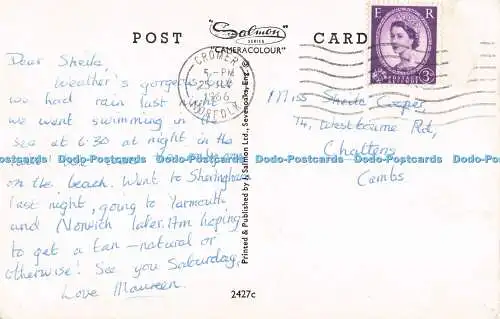 POST
"Salmon
SERIES
"CAMERACOLOUR"
CARD
E R
POSTAGE
3D
CROMER
5-PM
25 JLY
1966
NORFOLK
Dear Sheila
Weather's gorgeous, but
we had rain last night
we went swimming in the
sea at 6.30 at night in the
on the beach. Went to Sheringham
last night, going to Yarmouth
and Norwich later. Am hoping
to get a tan – natural or
otherwise! See you Saturday,
Love Maureen.
Miss Sheila Cooper,
74, Westbourne Rd,
Chatteris
Cambs
Printed & Published by J. Salmon Ltd., Sevenoaks, Eng. ©
2427c
Dodo-Postcards Dodo-Postcards Dodo-Postcards Dodo-Postcards Dodo-Postcards Dodo-Postcards